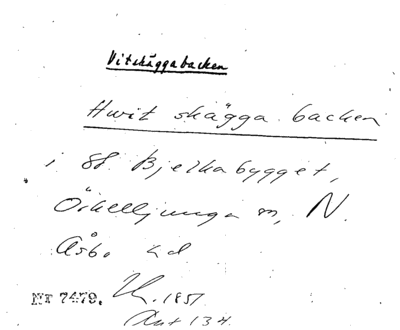 Vitskäggabacken
Hwit skägga backen
i St Bjelkabygget,
Örkelljunga sn, N.
Åsbo hd
Nr 7479. 1857
Ant 134